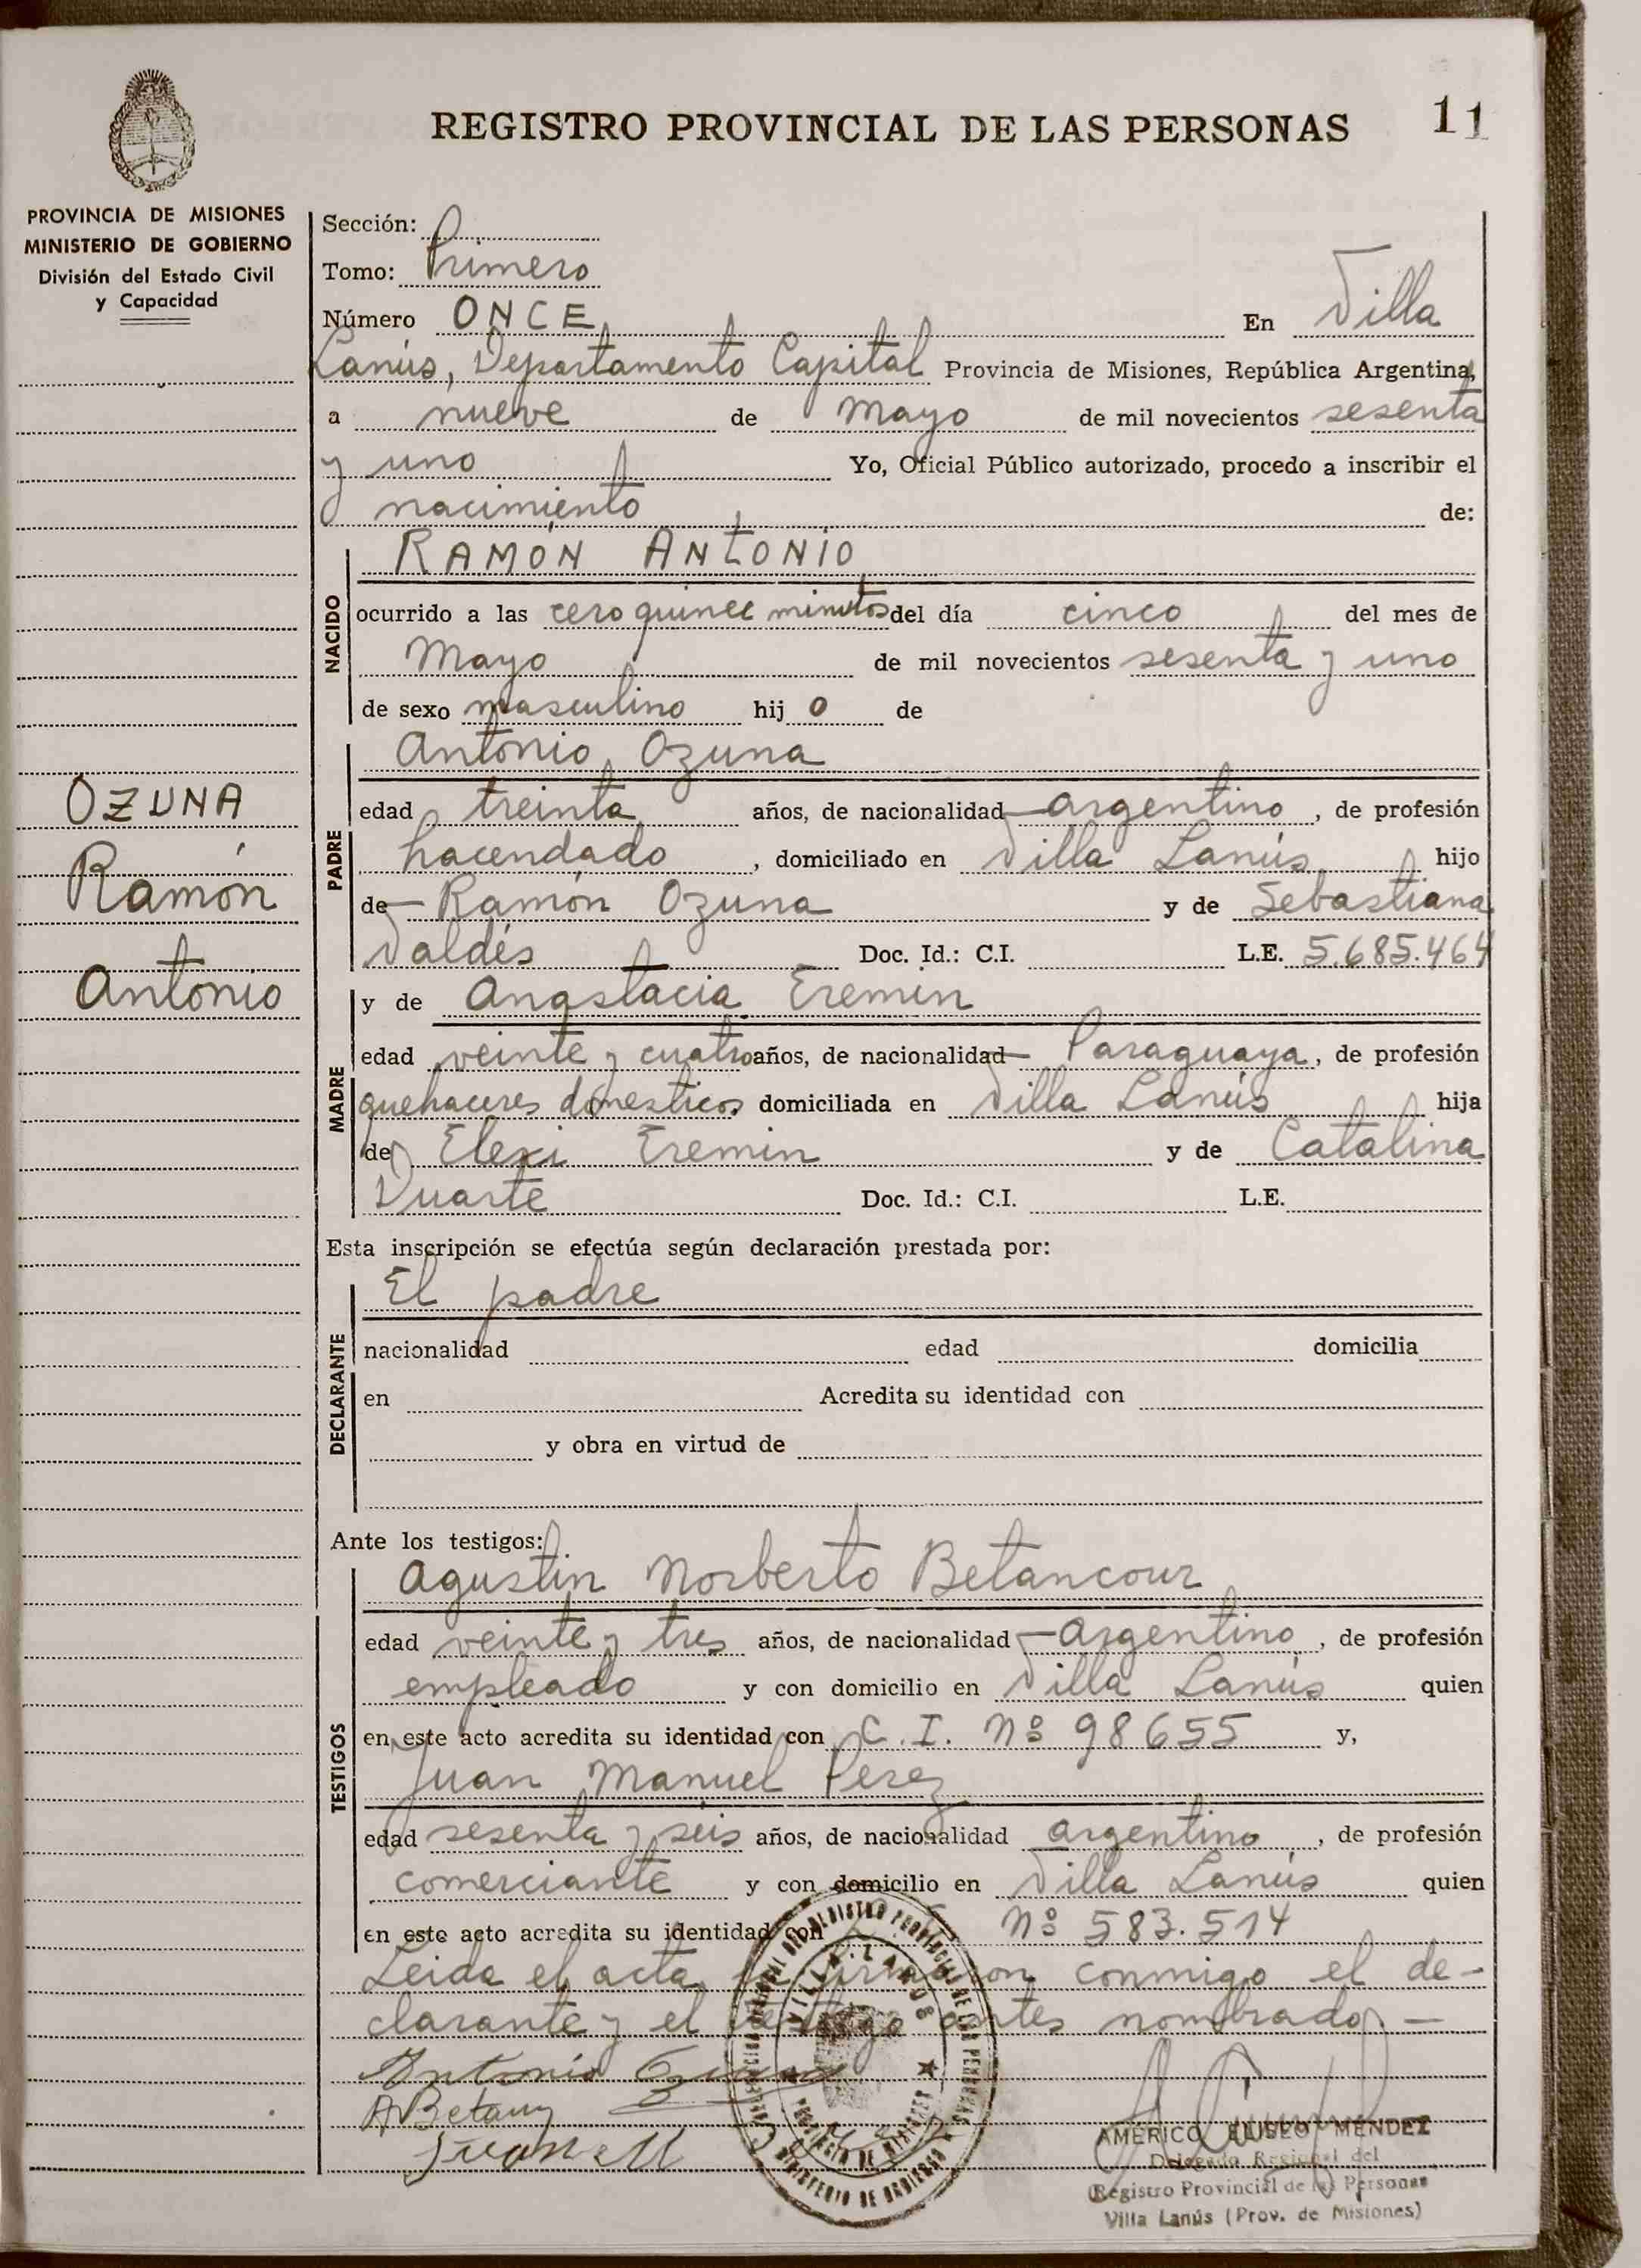 REGISTRO PROVINCIAL DE LAS PERSONAS 11
PROVINCIA DE MISIONES
MINISTERIO DE GOBIERNO
División del Estado Civil
y Capacidad
Sección:
Tomo: Primero
Número ONCE En Villa
Lanús, Departamento Capital Provincia de Misiones, República Argentina,
a nueve de Mayo de mil novecientos sesenta
y uno Yo, Oficial Público autorizado, procedo a inscribir el
nacimiento de:
RAMÓN ANTONIO
NACIDO
ocurrido a las cero quince minutos del día cinco del mes de
Mayo de mil novecientos sesenta y uno
de sexo masculino hij o de
Antonio Ozuna
OZUNA
Ramón
Antonio
PADRE
edad treinta años, de nacionalidad argentino, de profesión
hacendado, domiciliado en Villa Lanús hijo
de Ramón Ozuna y de Sebastiana
Valdés Doc. Id.: C.I. L.E. 5.685.464
y de Anastacia Eremin
MADRE
edad veinte y cuatro años, de nacionalidad Paraguaya, de profesión
quehaceres domesticos domiciliada en Villa Lanús hija
de Elexi Eremin y de Catalina
Duarte Doc. Id.: C.I. L.E.
Esta inscripción se efectúa según declaración prestada por:
El padre
DECLARANTE
nacionalidad edad domicilia
en Acredita su identidad con
y obra en virtud de
Ante los testigos:
Agustin Norberto Betancour
TESTIGOS
edad veinte y tres años, de nacionalidad argentino, de profesión
empleado y con domicilio en Villa Lanús quien
en este acto acredita su identidad con C.I. Nº 98655 y,
Juan Manuel Perez
edad sesenta y seis años, de nacionalidad argentino, de profesión
comerciante y con domicilio en Villa Lanús quien
en este acto acredita su identidad con Nº 583.514
Leida el acta, la firmaron conmigo el de-
clarante y el testigo antes nombrado -
Antonio Ozuna
ABetanc
Juan M
VILLA LANUS
PROVINCIA DE MISIONES
MINISTERIO DE GOBIERNO
AMÉRICO ELISEO MENDEZ
Delegado Regional del
Registro Provincial de las Personas
Villa Lanús (Prov. de Misiones)